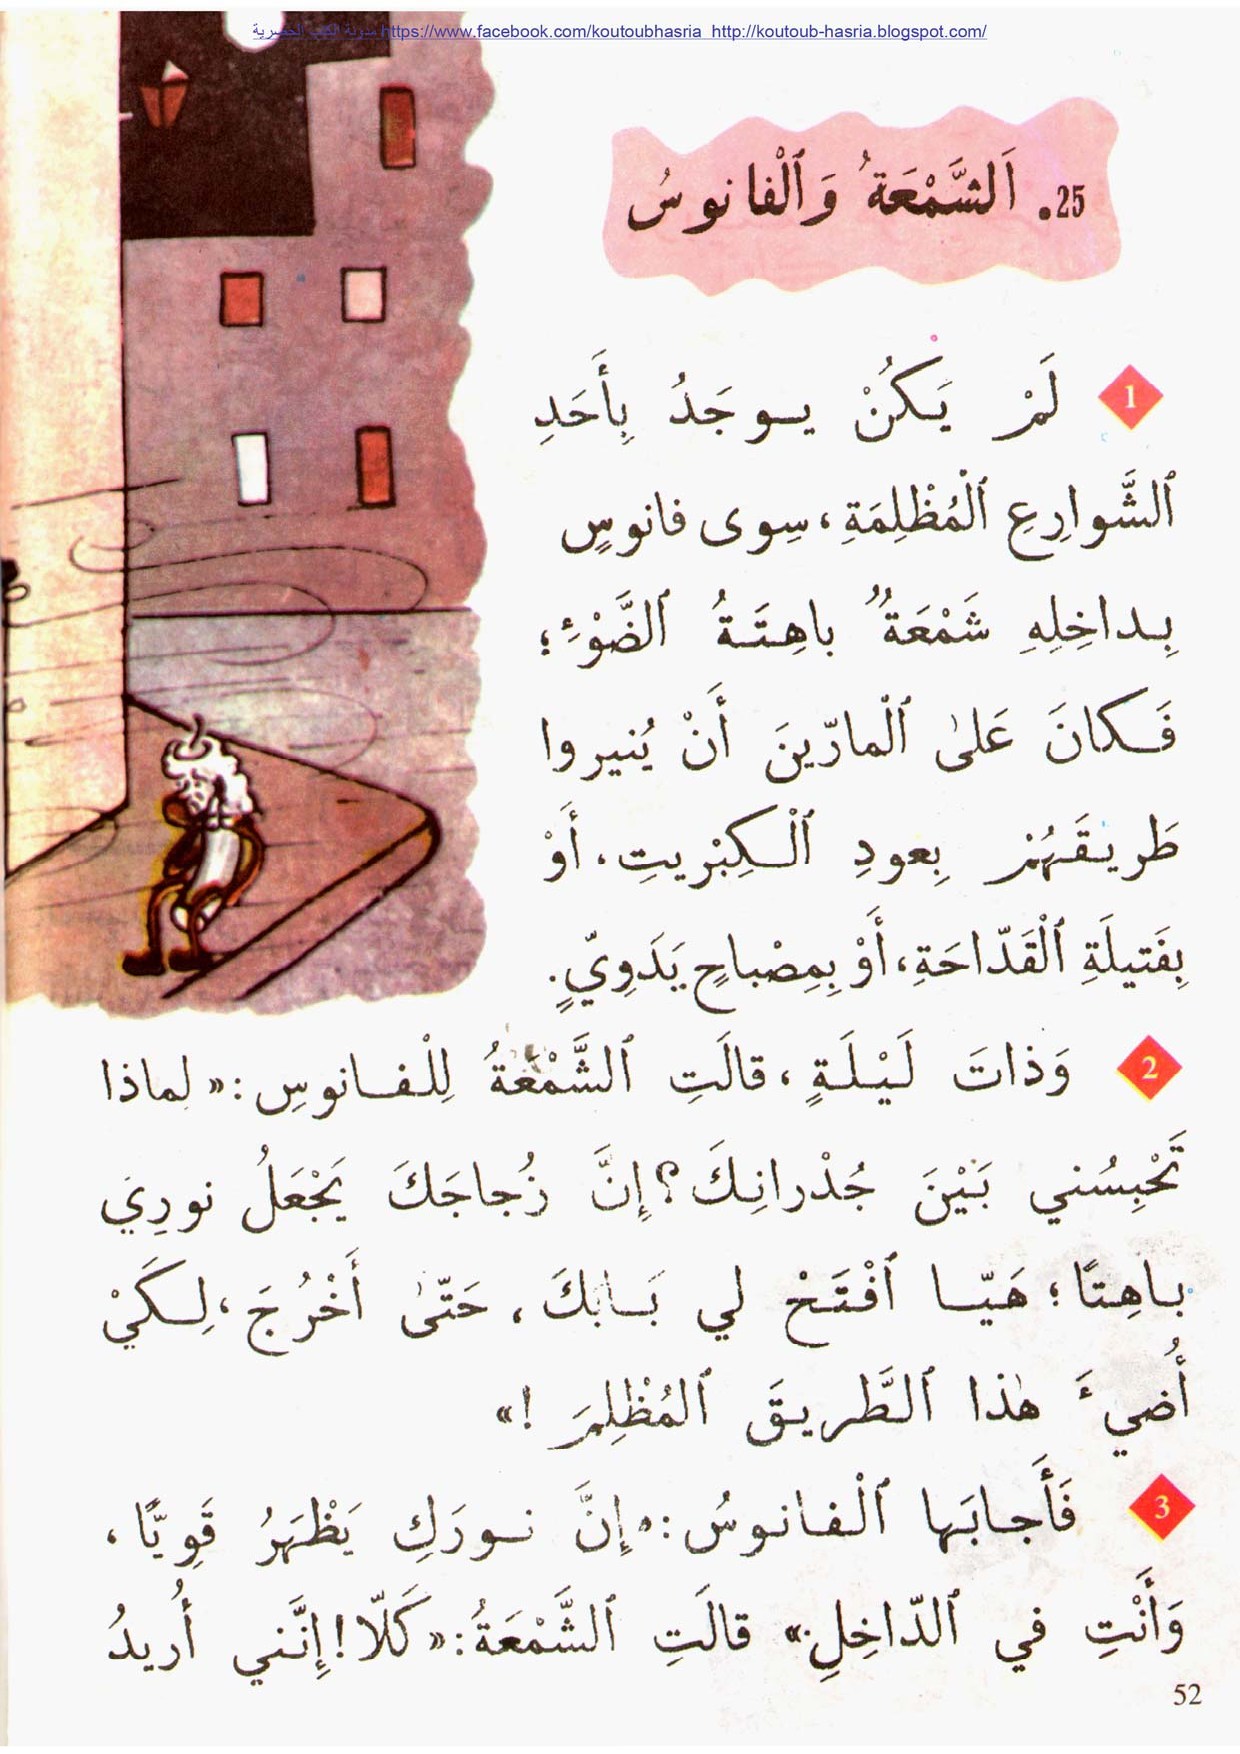 مدونة الكتب الحصرية https://www.facebook.com/koutoubhasria http://koutoub-hasria.blogspot.com/
25. اَلشَّمْعَةُ وَٱلْفانوسُ
1 لَمْ يَكُنْ يوجَدُ بِأَحَدِ
ٱلشَّوارِعِ ٱلْمُظْلِمَةِ، سِوى فانوسٍ
بِداخِلِهِ شَمْعَةٌ باهِتَةُ ٱلضَّوْءِ؛
فَكانَ عَلىٰ ٱلْمارّينَ أَنْ يُنيروا
طَريقَهُمْ بِعودِ ٱلْكِبْريتِ، أَوْ
بِفَتيلَةِ ٱلْقَدّاحَةِ، أَوْ بِمِصْباحٍ يَدَوِيٍّ.
2 وَذاتَ لَيْلَةٍ، قالَتِ ٱلشَّمْعَةُ لِلْفانوسِ: «لِماذا
تَحْبِسُني بَيْنَ جُدْرانِكَ؟ إِنَّ زُجاجَكَ يَجْعَلُ نورِيَ
باهِتًا؛ هَيّا ٱفْتَحْ لي بَابَكَ، حَتّىٰ أَخْرُجَ، لِكَيْ
أُضيءَ هٰذا ٱلطَّريقَ ٱلمُظْلِمَ!»
3 فَأَجابَها ٱلْفانوسُ: «إِنَّ نورَكِ يَظْهَرُ قَوِيًّا،
وَأَنْتِ في ٱلدّاخِلِ.» قالَتِ ٱلشَّمْعَةُ: «كَلّا! إِنَّني أُريدُ
52